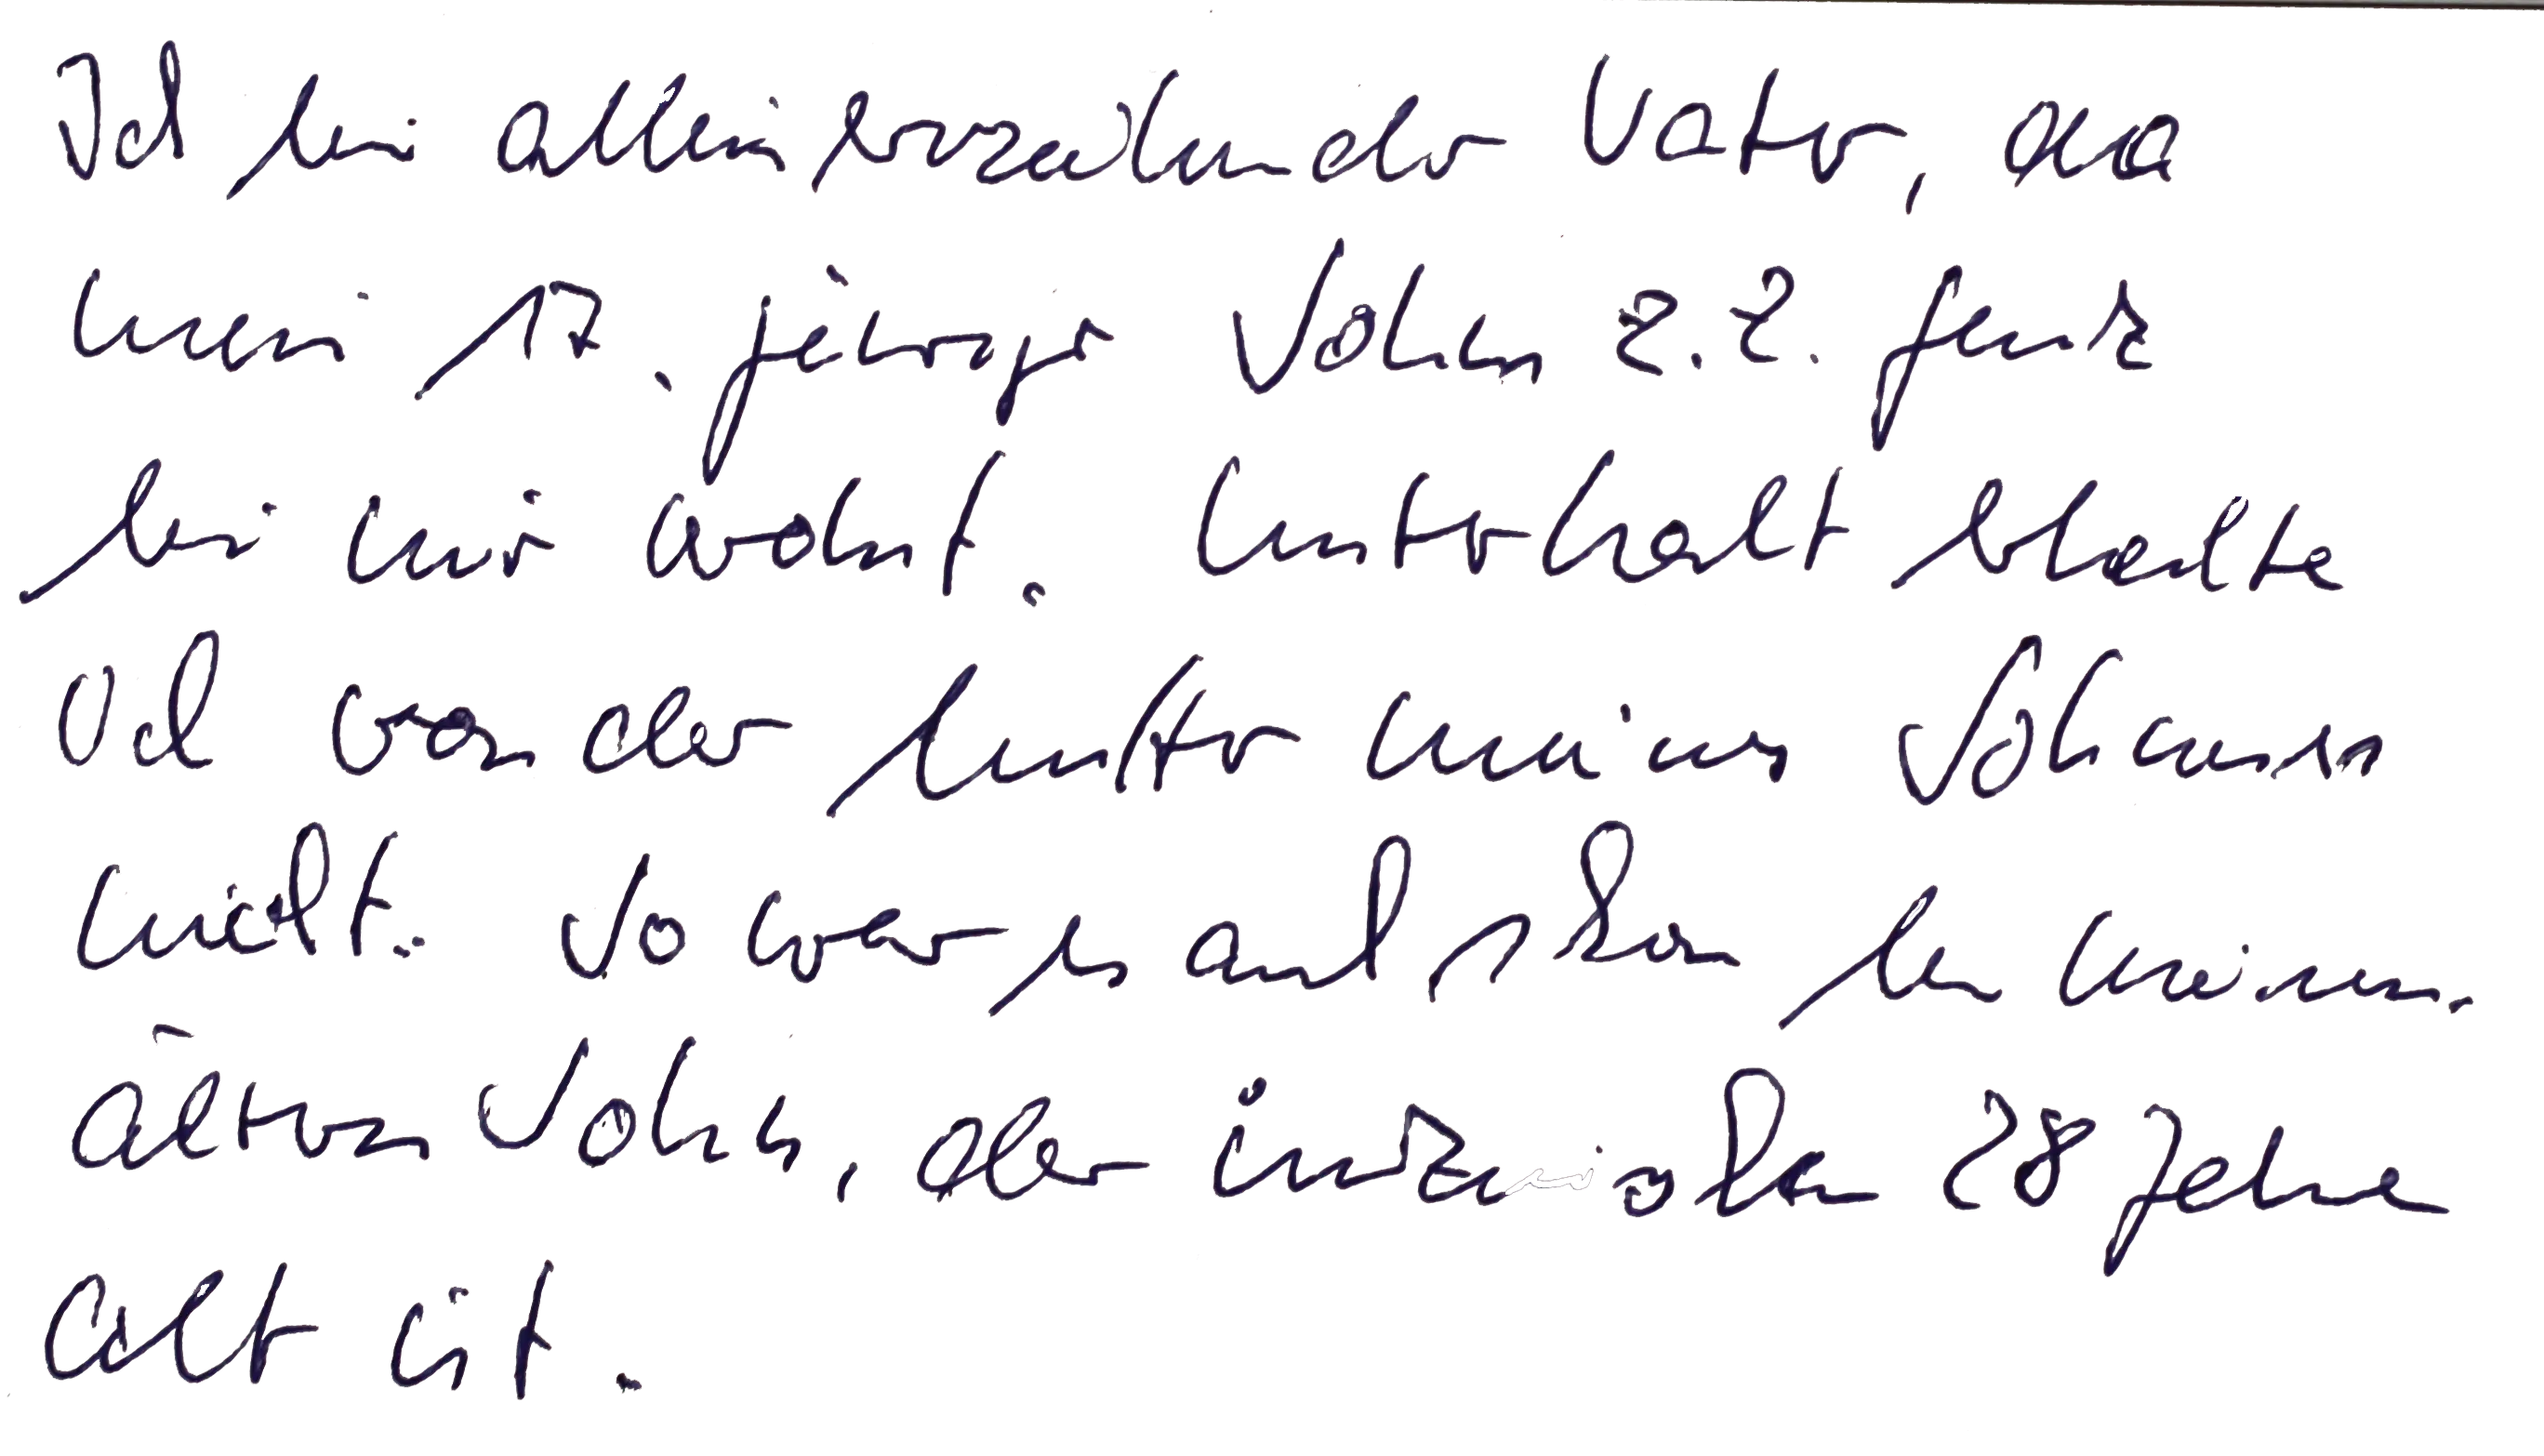 Ich bin alleinerziehender Vater, da
mein 17. jähriger Sohn z.Z. ganz
bei mir wohnt. Unterhalt
ich von der Mutter meines Sohnes
nicht. So war es auch schon bei meinem
älteren Sohn, der inzwischen 28 Jahre
alt ist.